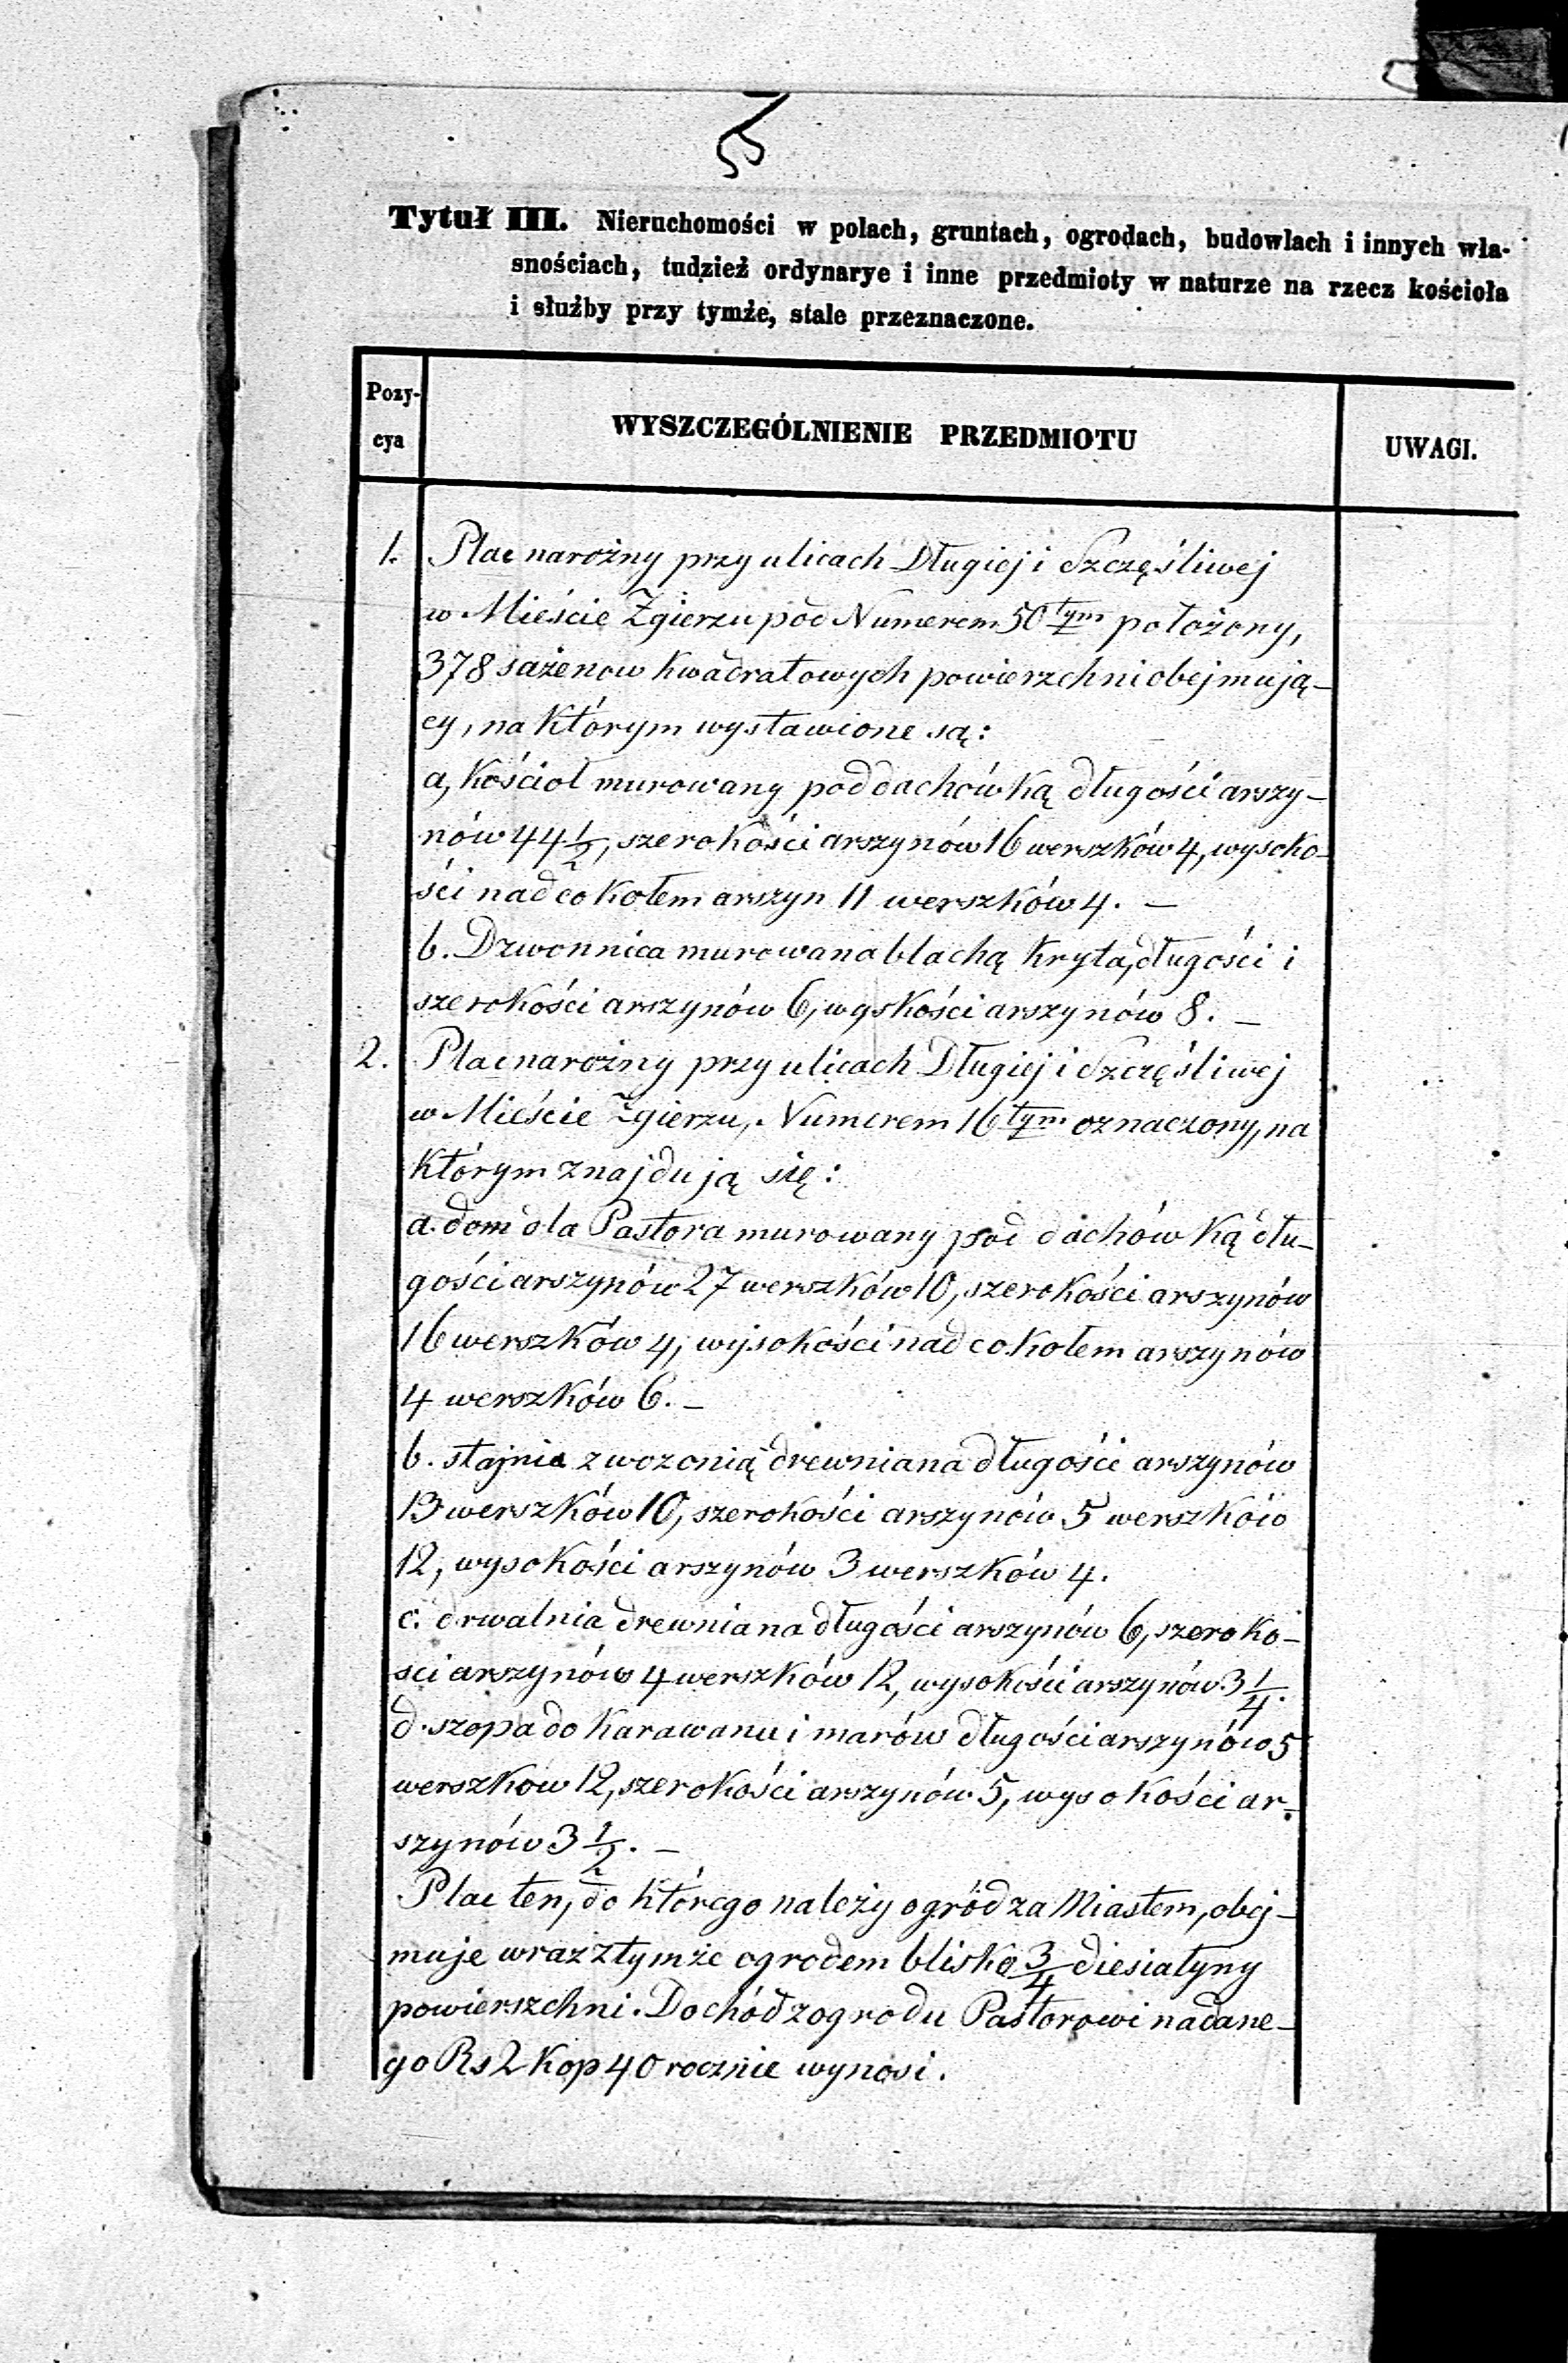 Tytuł III. Nieruchomości w polach, gruntach, ogrodach, budowlach i innych wła-
snościach, tudzież ordynarye i inne przedmioty w naturze na rzecz kościoła
i służby przy tymże, stale przeznaczone.
Pozy-
cya
WYSZCZEGÓLNIENIE PRZEDMIOTU
UWAGI.
1. Plac narożny przy ulicach Długiej i Szczęśliwej
w Mieście Zgierzu pod Numerem 50 tym położony,
378 sażenow kwadratowych powierzchni obejmują-
cy, na którym wystawione są:
a, kościoł murowany pod dachówką długości arszy-
nów 44 1/2, szerokości arszynów 16 werszków 4, wysoko-
ści nad cokołem arszyn 11 werszków 4. –
b. Dzwonnica murowana blachą kryta, długości i
szerokości arszynów 6, wyskości arszynów 8. –
2. Plac narożny przy ulicach Długiej i Szczęśliwej
w Mieście Zgierzu, Numerem 16 tym oznaczony, na
którym znajdują się:
a. dom dla Pastora murowany pod dachówką dłu-
gości arszynów 27 werszków 10, szerokości arszynów
16 werszków 4, wysokości nad cokołem arszynów
4 werszków 6. –
b. stajnia z wozonią drewniana długości arszynów
13 werszków 10, szerokości arszynów 5 werszków
12, wysokości arszynów 3 werszków 4.
c. drwalnia drewniana długości arszynów 6, szeroko-
ści arszynów 4 werszków 12, wysokości arszynów 3 1/4.
d. szopa do karawanu i marów długości arszynów 5
werszkow 12, szerokości arszynów 5, wysokości ar-
szynów 3 1/2. –
Plac ten, do którego należy ogród za Miastem, obej-
muje wraz z tymże ogrodem blisko 3/4 diesiatyny
powierszchni. Dochód z ogrodu Pastorowi nadane-
go Rs 2 kop 40 rocznie wynosi.